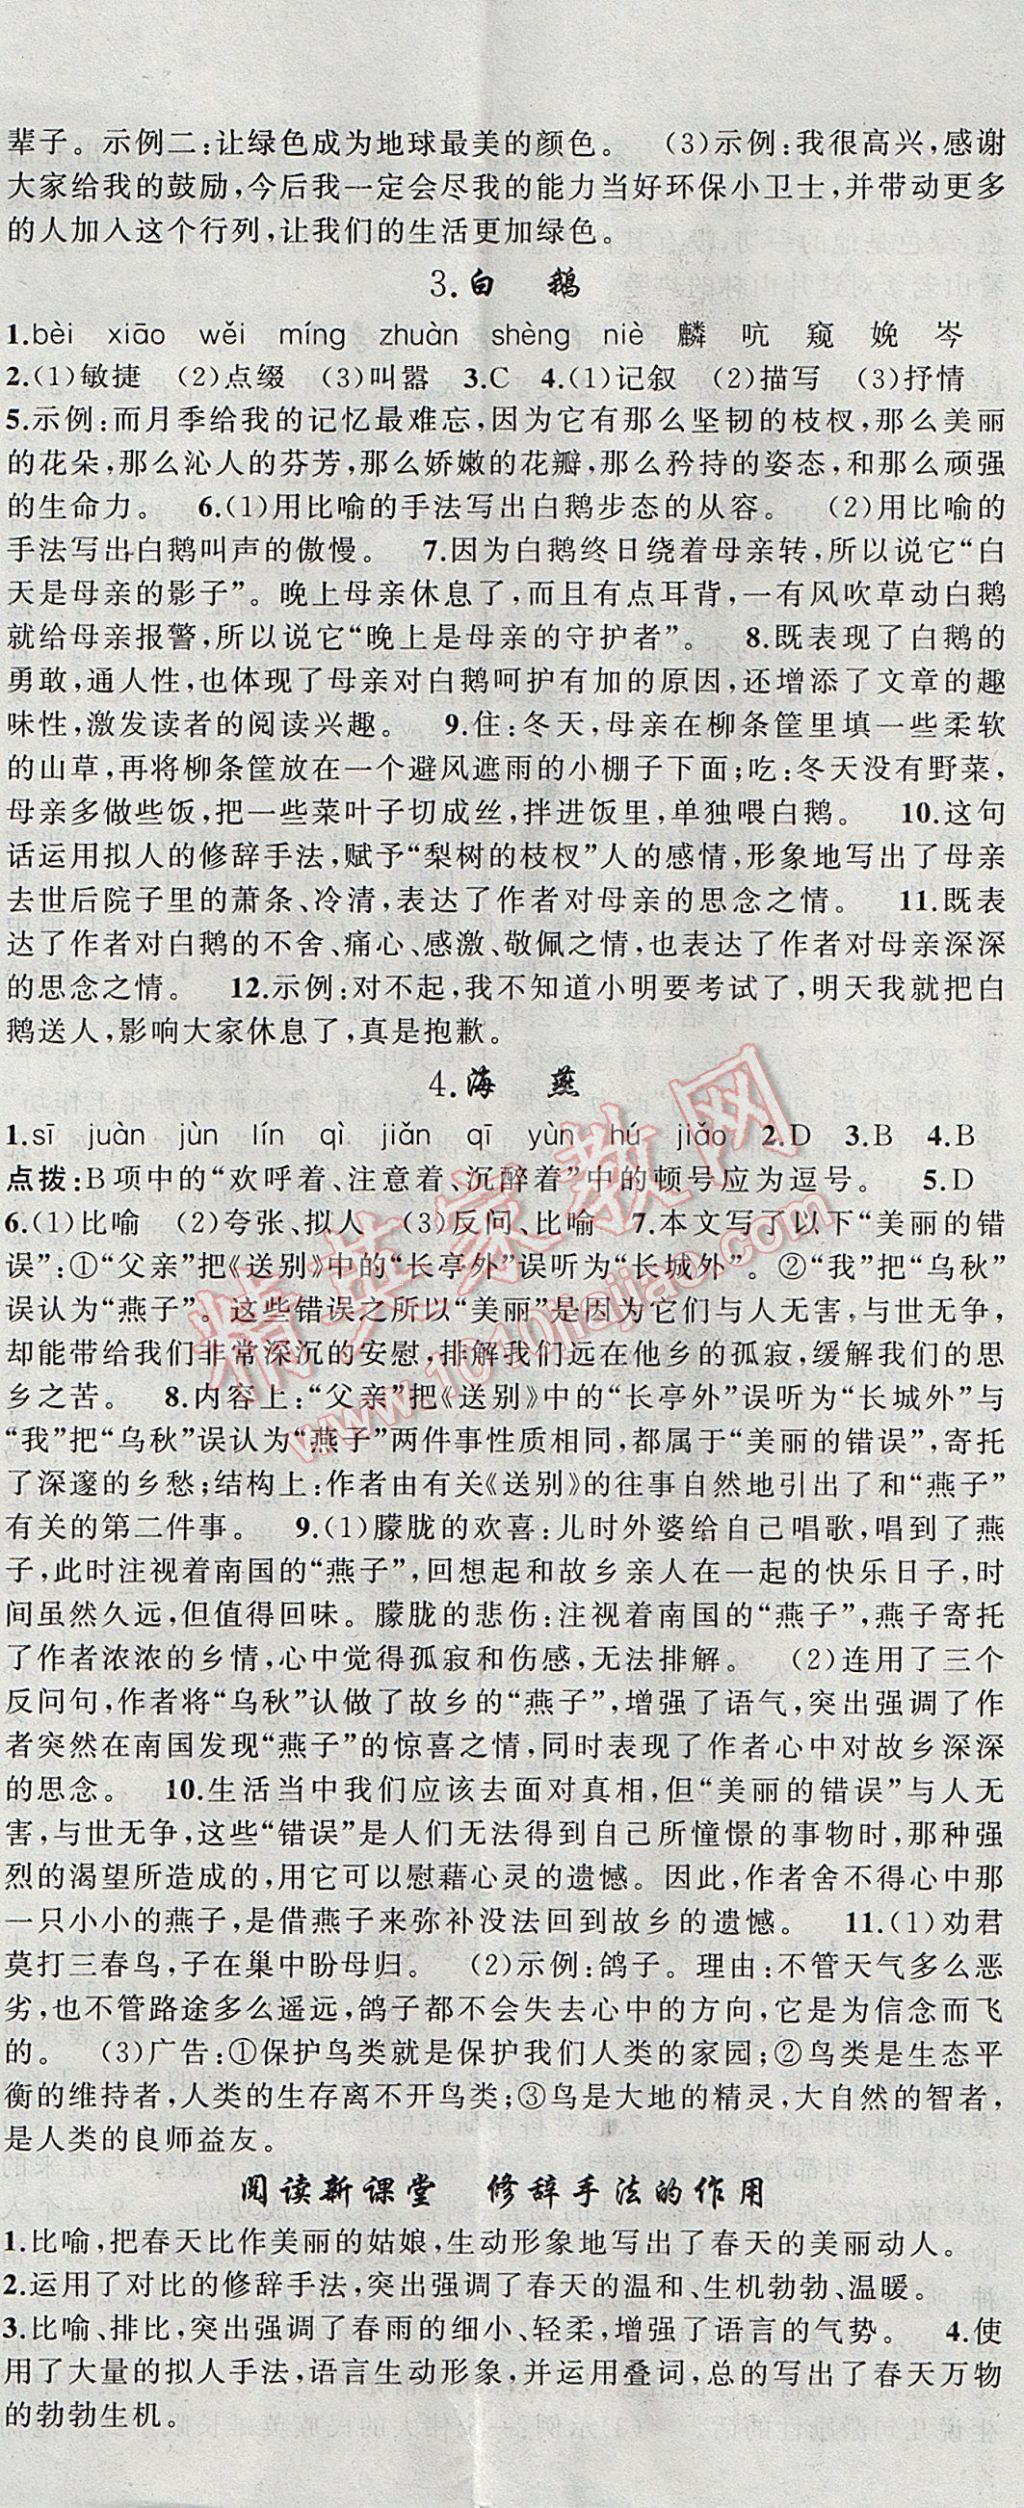 辈子。示例二:让绿色成为地球最美的颜色。 (3)示例:我很高兴,感谢
大家给我的鼓励,今后我一定会尽我的能力当好环保小卫士,并带动更多
的人加入这个行列,让我们的生活更加绿色。
3.白 鹅
1.bèi xiāo wěi míng zhuàn shèng niè 麟 吭 窥 娩 岑
2.(1)敏捷 (2)点缀 (3)叫嚣 3.C 4.(1)记叙 (2)描写 (3)抒情
5.示例:而月季给我的记忆最难忘,因为它有那么坚韧的枝杈,那么美丽
的花朵,那么沁人的芬芳,那么娇嫩的花瓣,那么矜持的姿态,和那么顽强
的生命力。 6.(1)用比喻的手法写出白鹅步态的从容。 (2)用比喻的
手法写出白鹅叫声的傲慢。 7.因为白鹅终日绕着母亲转,所以说它“白
天是母亲的影子”。晚上母亲休息了,而且有点耳背,一有风吹草动白鹅
就给母亲报警,所以说它“晚上是母亲的守护者”。 8.既表现了白鹅的
勇敢,通人性,也体现了母亲对白鹅呵护有加的原因,还增添了文章的趣
味性,激发读者的阅读兴趣。 9.住:冬天,母亲在柳条筐里填一些柔软
的山草,再将柳条筐放在一个避风遮雨的小棚子下面;吃:冬天没有野菜,
母亲多做些饭,把一些菜叶子切成丝,拌进饭里,单独喂白鹅。 10.这句
话运用拟人的修辞手法,赋予“梨树的枝杈”人的感情,形象地写出了母亲
去世后院子里的萧条、冷清,表达了作者对母亲的思念之情。 11.既表
达了作者对白鹅的不舍、痛心、感激、敬佩之情,也表达了作者对母亲深深
的思念之情。 12.示例:对不起,我不知道小明要考试了,明天我就把白
鹅送人,影响大家休息了,真是抱歉。
4.海 燕
1.sī juàn jùn lín qì jiǎn qī yùn hú jiǎo 2.D 3.B 4.B
点拨:B项中的“欢呼着、注意着、沉醉着”中的顿号应为逗号。 5.D
6.(1)比喻 (2)夸张、拟人 (3)反问、比喻 7.本文写了以下“美丽的错
误”:①“父亲”把《送别》中的“长亭外”误听为“长城外”。②“我”把“乌秋”
误认为“燕子”。这些错误之所以“美丽”是因为它们与人无害,与世无争,
却能带给我们非常深沉的安慰,排解我们远在他乡的孤寂,缓解我们的思
乡之苦。 8.内容上:“父亲”把《送别》中的“长亭外”误听为“长城外”与
“我”把“乌秋”误认为“燕子”两件事性质相同,都属于“美丽的错误”,寄托
了深邃的乡愁;结构上:作者由有关《送别》的往事自然地引出了和“燕子”
有关的第二件事。 9.(1)朦胧的欢喜:儿时外婆给自己唱歌,唱到了燕
子,此时注视着南国的“燕子”,回想起和故乡亲人在一起的快乐日子,时
间虽然久远,但值得回味。朦胧的悲伤:注视着南国的“燕子”,燕子寄托
了作者浓浓的乡情,心中觉得孤寂和伤感,无法排解。 (2)连用了三个
反问句,作者将“乌秋”认做了故乡的“燕子”,增强了语气,突出强调了作
者突然在南国发现“燕子”的惊喜之情,同时表现了作者心中对故乡深深
的思念。 10.生活当中我们应该去面对真相,但“美丽的错误”与人无
害,与世无争,这些“错误”是人们无法得到自己所憧憬的事物时,那种强
烈的渴望所造成的,用它可以慰藉心灵的遗憾。因此,作者舍不得心中那
一只小小的燕子,是借燕子来弥补没法回到故乡的遗憾。 11.(1)劝君
莫打三春鸟,子在巢中盼母归。 (2)示例:鸽子。理由:不管天气多么恶
劣,也不管路途多么遥远,鸽子都不会失去心中的方向,它是为信念而飞
的。 (3)广告:①保护鸟类就是保护我们人类的家园;②鸟类是生态平
衡的维持者,人类的生存离不开鸟类;③鸟是大地的精灵,大自然的智者,
是人类的良师益友。
阅读新课堂 修辞手法的作用
1.比喻,把春天比作美丽的姑娘,生动形象地写出了春天的美丽动人。
2.运用了对比的修辞手法,突出强调了春天的温和、生机勃勃、温暖。
3.比喻、排比,突出强调了春雨的细小、轻柔,增强了语言的气势。 4.使
用了大量的拟人手法,语言生动形象,并运用叠词,总的写出了春天万物
的勃勃生机。
精英家教网
www.1010jiajiao.com